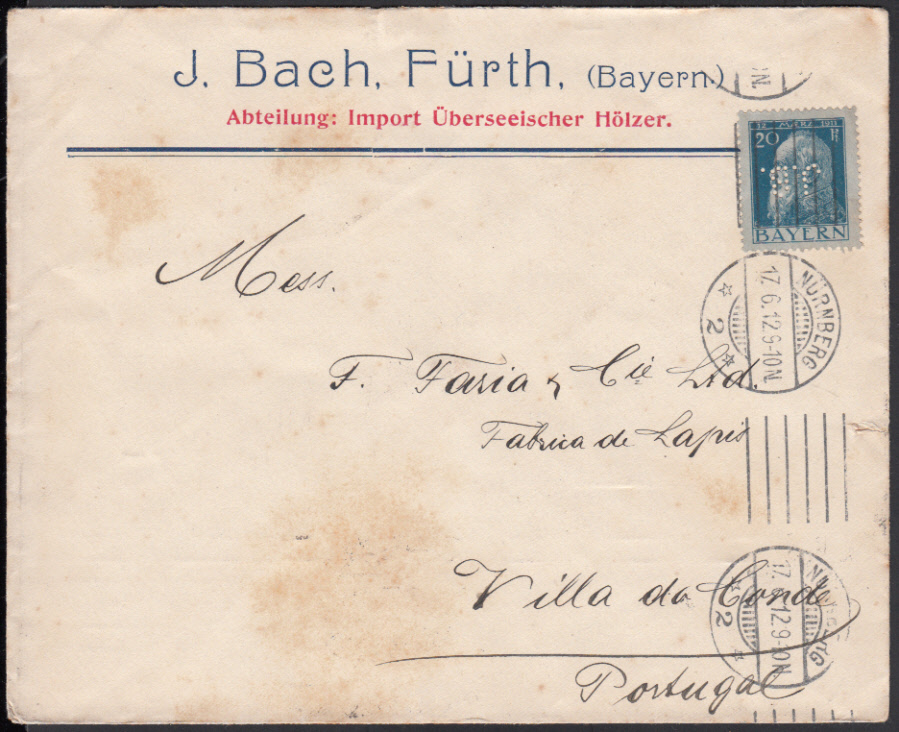 J. Bach, Fürth, (Bayern.)
Abteilung: Import Überseeischer Hölzer.
12. MÆRZ 1911
20 Pf
BAYERN
NÜRNBERG
17.6.12.9-10N.
2
Mess.
F. Faria & Cie Ltd.
Fabrica de Lapis
Villa do Conde
Portugal
NÜRNBERG
17.6.12.9-10N.
2